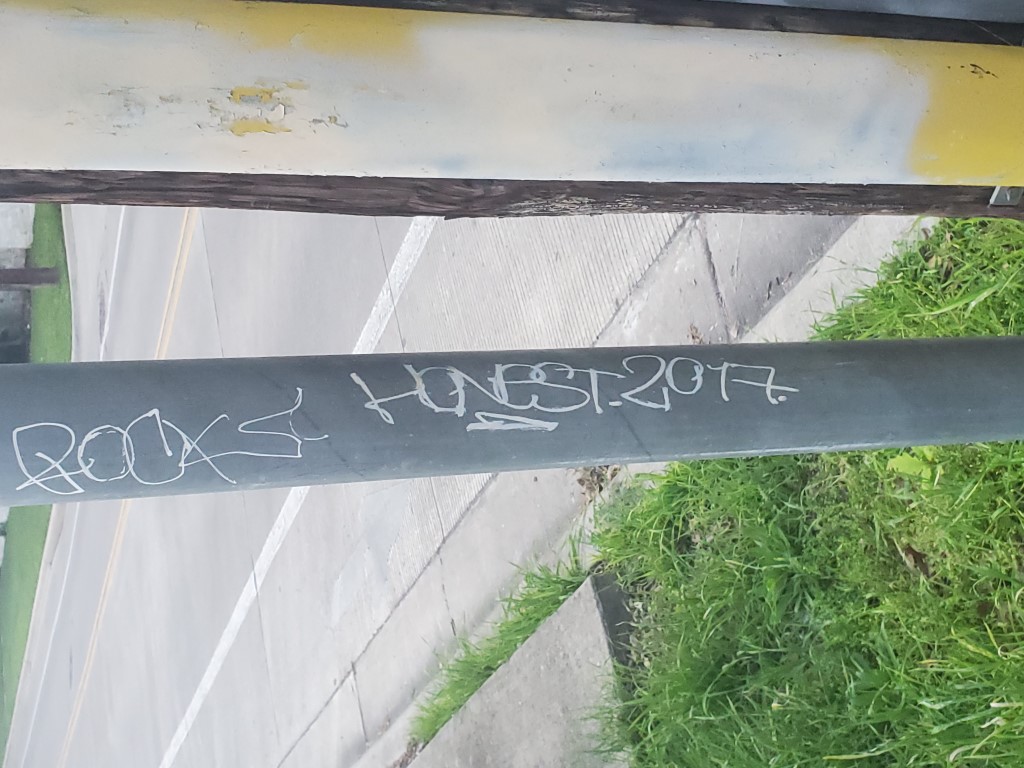 ROCKS
HONEST.2017.